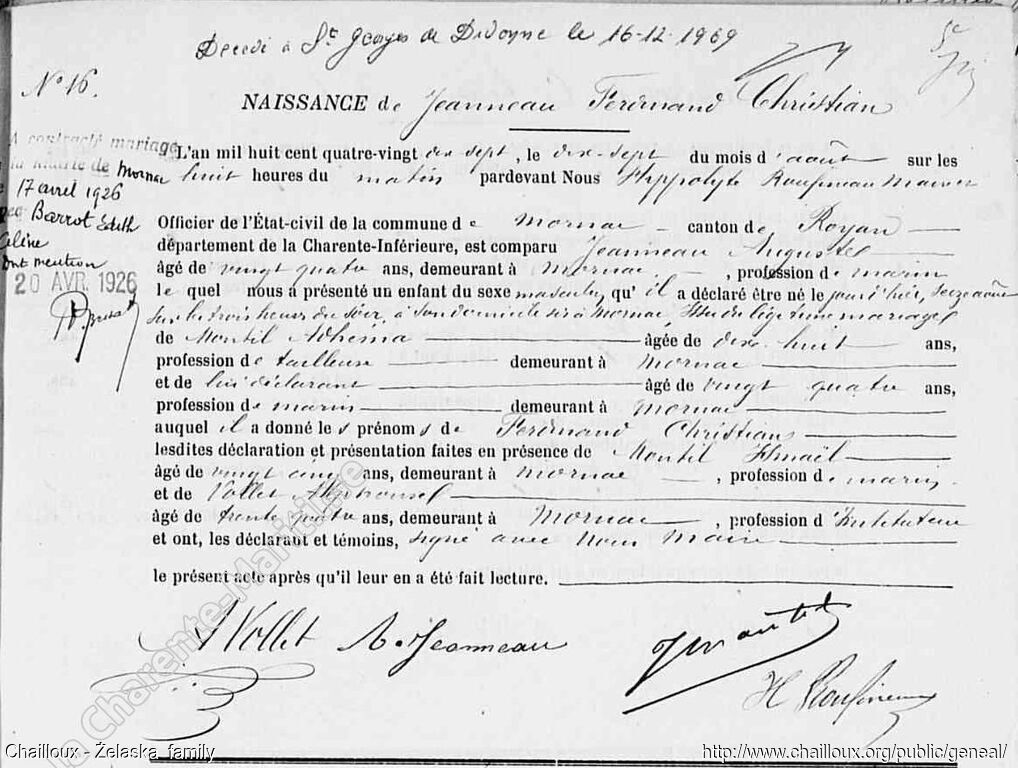 Décédé à St Georges de Didonne le 16-12-1969
N° 16.
NAISSANCE de Jeanneau Ferdinand Christian
L'an mil huit cent quatre-vingt dix sept, le dix-sept du mois d'août sur les
huit heures du matin pardevant Nous Hyppolyte Roufineau Maire
Officier de l'État-civil de la commune de Mornac canton de Royan
département de la Charente-Inférieure, est comparu Jeanneau Auguste
âgé de vingt quatre ans, demeurant à Mornac, profession de marin
le quel nous a présenté un enfant du sexe masculin, qu'il a déclaré être né le jour d'hier, seize août
sur les trois heures du soir, à son domicile sis à Mornac légitime mariage
de Montil Adhéma âgée de dix huit ans,
profession de tailleuse demeurant à Mornac
et de lui déclarant âgé de vingt quatre ans,
profession de marin demeurant à Mornac
auquel il a donné les prénoms de Ferdinand Christian
lesdites déclaration et présentation faites en présence de Montil Ismaël
âgé de vingt cinq ans, demeurant à Mornac, profession de marin
et de Vollet Alphonse
âgé de trente quatre ans, demeurant à Mornac, profession d'Instituteur
et ont, les déclarant et témoins, signé avec nous Maire
le présent acte après qu'il leur en a été fait lecture.
A contracté mariage
la Mairie de Mornac
17 avril 1926
Barrot Edith
Céline
ont mention
20 AVR. 1926
A Vollet A. Jeanneau
H Roufineau
la Charente-Maritime
Chailloux - Żelaska family
http://www.chailloux.org/public/geneal/